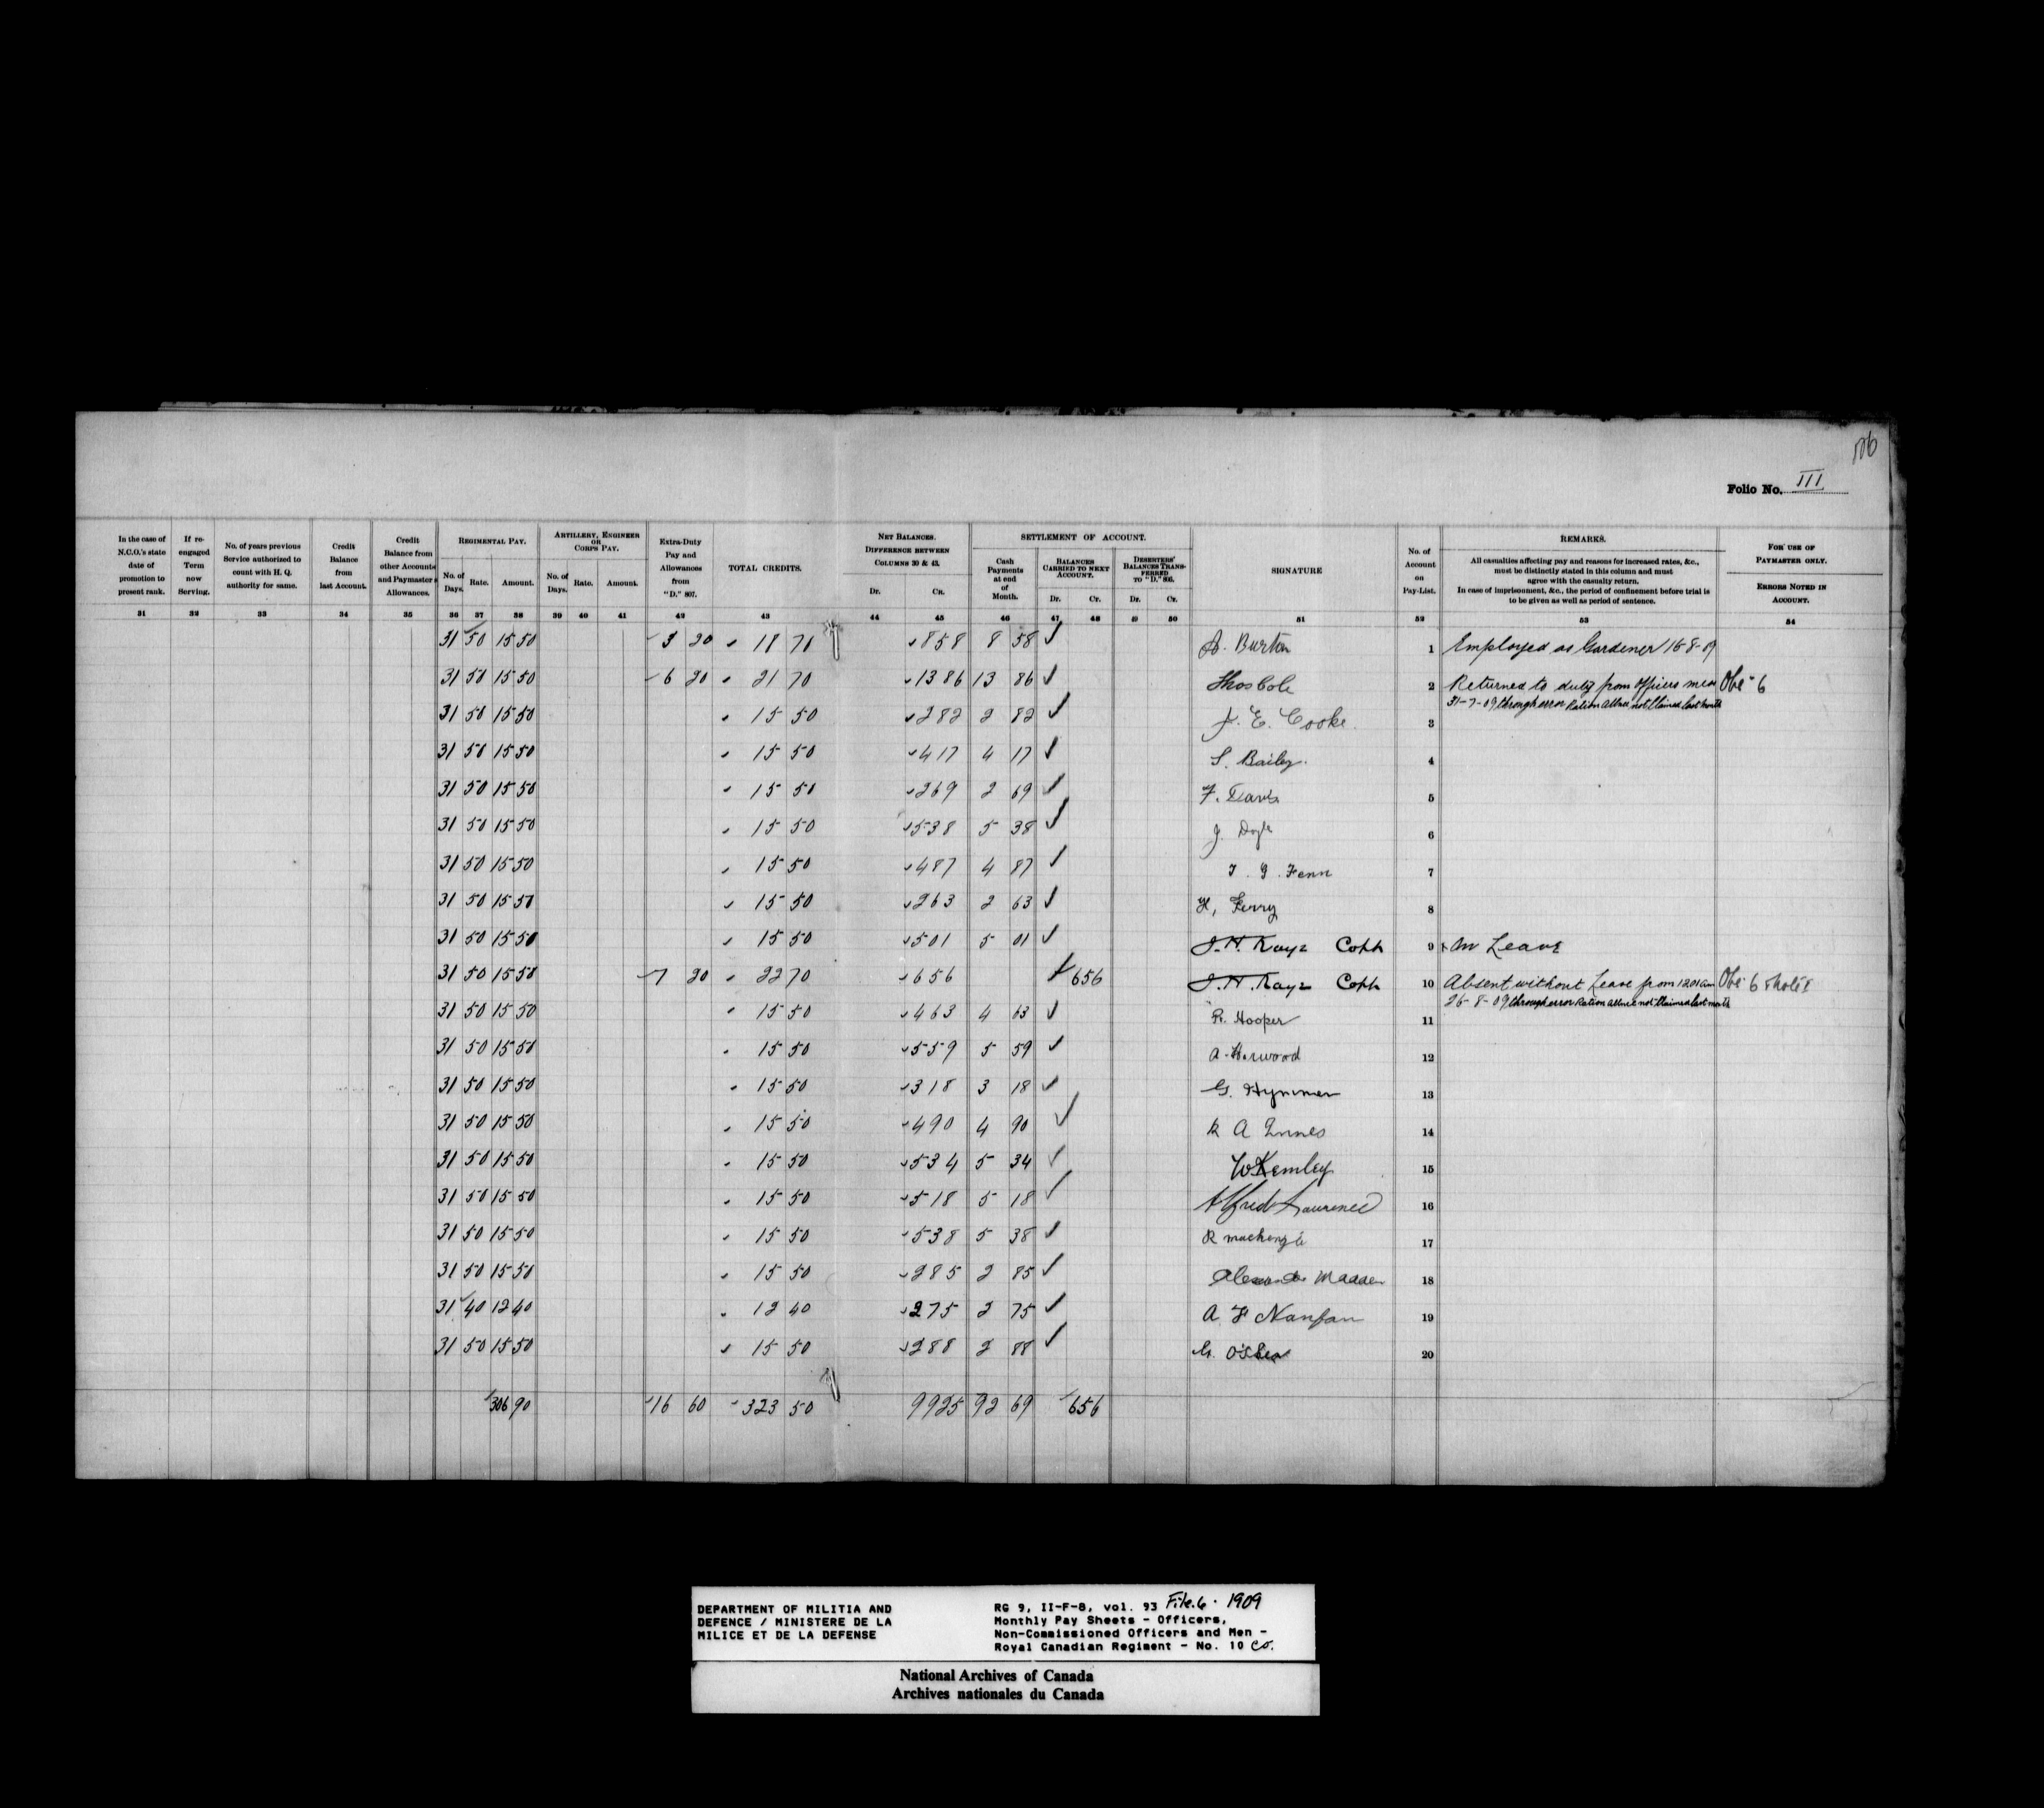 Folio No. III
In the case of N.C.O.'s state date of promotion to present rank.
If re-engaged Term now Serving.
No. of years previous Service authorized to count with H. Q. authority for same.
Credit Balance from last Account.
Credit Balance from other Accounts and Paymaster's Allowances.
REGIMENTAL PAY.
No. of Days. Rate. Amount.
ARTILLERY, ENGINEER OR CORPS PAY.
No. of Days. Rate. Amount.
Extra-Duty Pay and Allowances from "D." 807.
TOTAL CREDITS.
NET BALANCES. DIFFERENCE BETWEEN COLUMNS 30 & 43.
Dr. CR.
SETTLEMENT OF ACCOUNT.
Cash Payments at end of Month.
BALANCES CARRIED TO NEXT ACCOUNT.
Dr. Cr.
DESERTERS' BALANCES TRANSFERRED TO "D." 805.
Dr. Cr.
SIGNATURE
No. of Account on Pay-List.
REMARKS.
All casualties affecting pay and reasons for increased rates, &c., must be distinctly stated in this column and must agree with the casualty return.
In case of imprisonment, &c., the period of confinement before trial is to be given as well as period of sentence.
FOR USE OF PAYMASTER ONLY.
ERRORS NOTED IN ACCOUNT.
31 32 33 34 35 36 37 38 39 40 41 42 43 44 45 46 47 48 49 50 51 52 53 54
31 50 15 50 3 20 18 70 8 58 8 58 Burton 1 Employed as Gardener 16-8-09
31 50 15 50 6 20 21 70 13 86 13 86 Thos Cole 2 Returned to duty from Officers mess
31-7-09 through error Ration Allce not Claimed last month
31 50 15 50 15 50 2 82 2 82 E. Cooke 3
31 50 15 50 15 50 4 17 4 17 S. Bailey. 4
31 50 15 50 15 50 2 69 2 69 F. Davis 5
31 50 15 50 15 50 5 38 5 38 J. Doyle 6
31 50 15 50 15 50 4 87 4 87 T. G. Fenn 7
31 50 15 50 15 50 2 63 2 63 H, Ferry 8
31 50 15 50 15 50 5 01 5 01 J. H. Kaye 9 on Leave
31 50 15 50 7 20 22 70 6 56 6 56 J. H. Kaye 10 Absent without Leave from 12 01 am
26-8-09 through error Ration Allnce not Claimed last month
31 50 15 50 15 50 4 63 4 63 R. Hooper 11
31 50 15 50 15 50 5 59 5 59 A. Harwood 12
31 50 15 50 15 50 3 18 3 18 G. Hymmer 13
31 50 15 50 15 50 4 90 4 90 R A Innes 14
31 50 15 50 15 50 5 34 5 34 W Kemley 15
31 50 15 50 15 50 5 18 5 18 Alfred Laurence 16
31 50 15 50 15 50 5 38 5 38 R mackenzie 17
31 50 15 50 15 50 2 85 2 85 Alexander Madden 18
31 40 12 40 12 40 2 75 2 75 A. F Nanfan 19
31 50 15 50 15 50 2 88 2 88 O'Shea 20
306 90 16 60 323 50 99 25 92 69 6 56
DEPARTMENT OF MILITIA AND
DEFENCE / MINISTERE DE LA
MILICE ET DE LA DEFENSE
RG 9, II-F-8, vol. 93 File.6. 1909
Monthly Pay Sheets - Officers,
Non-Commissioned Officers and Men -
Royal Canadian Regiment - No. 10 Co.
National Archives of Canada
Archives nationales du Canada